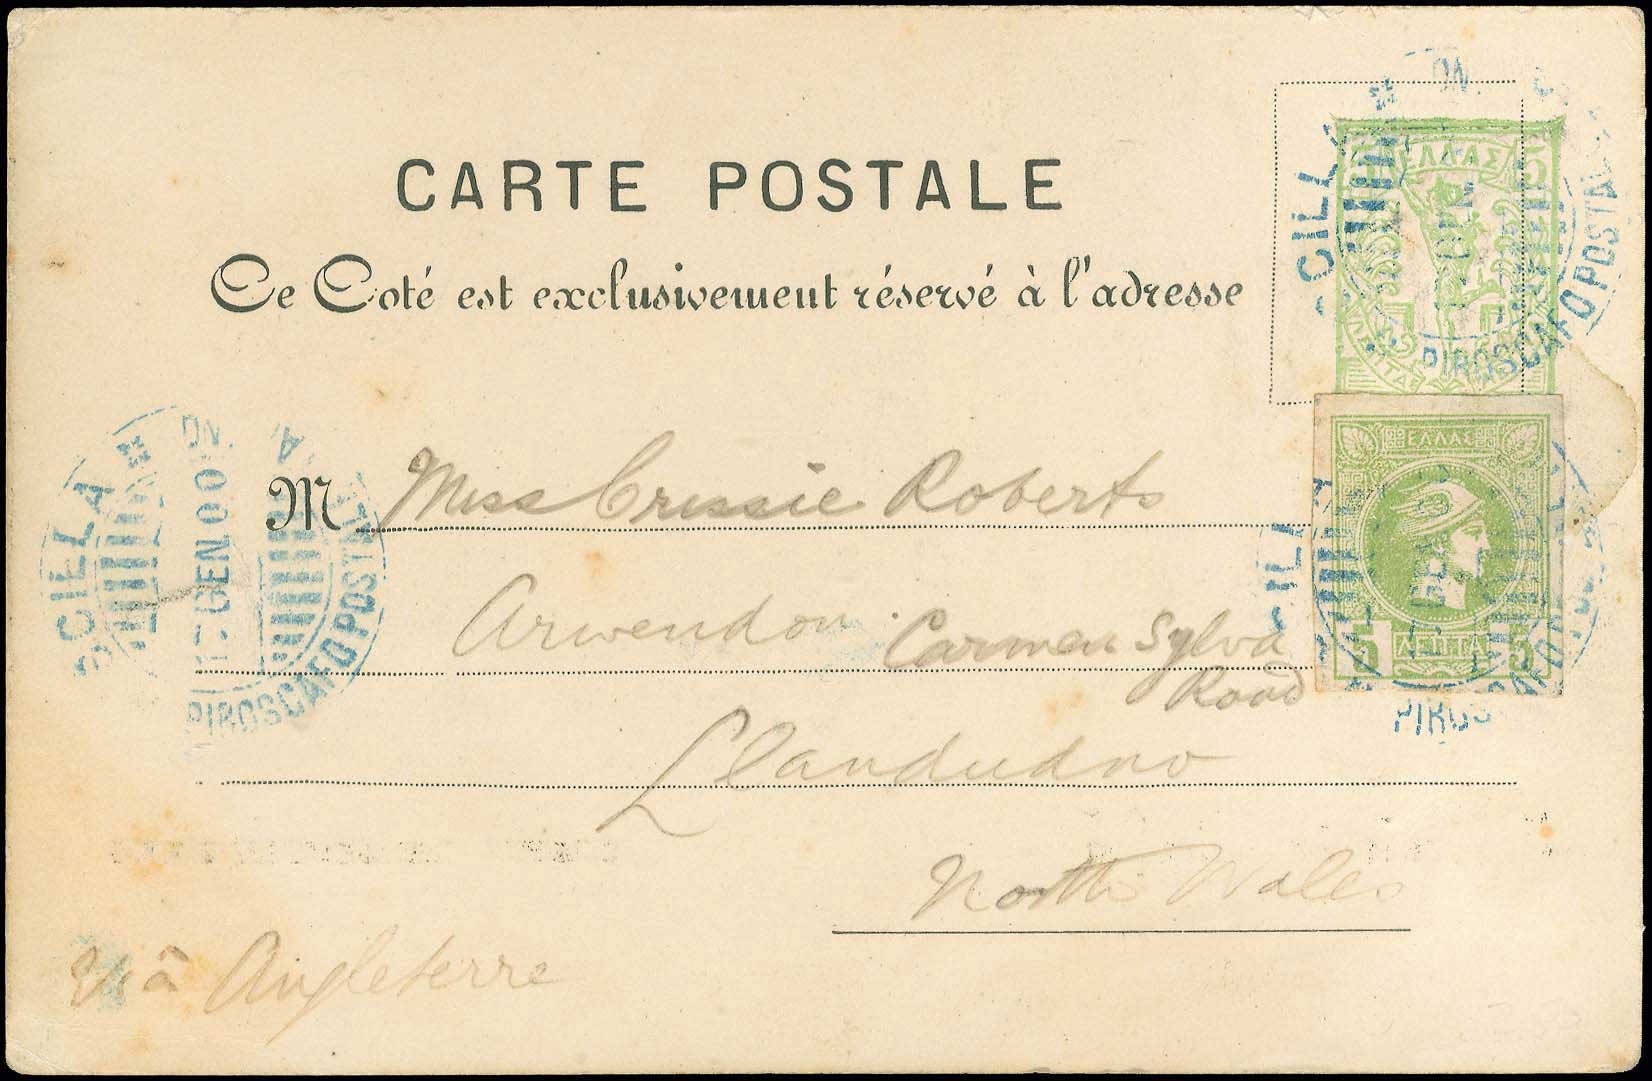 CARTE POSTALE
Ce Coté est exclusivement réservé à l'adresse
5 ΕΛΛΑΣ 5
ΛΕΠΤΑ
PIROSCAFO POSTALE
SCILLA
ΕΛΛΑΣ
5 ΛΕΠΤΑ 5
SCILLA
PIROS
SCILLA
GEN 00
PIROSCAFO POSTALE
M Miss Crissie Roberts
Arwendon Carmen Sylva
Road
Llandudno
North Wales
via Angleterre